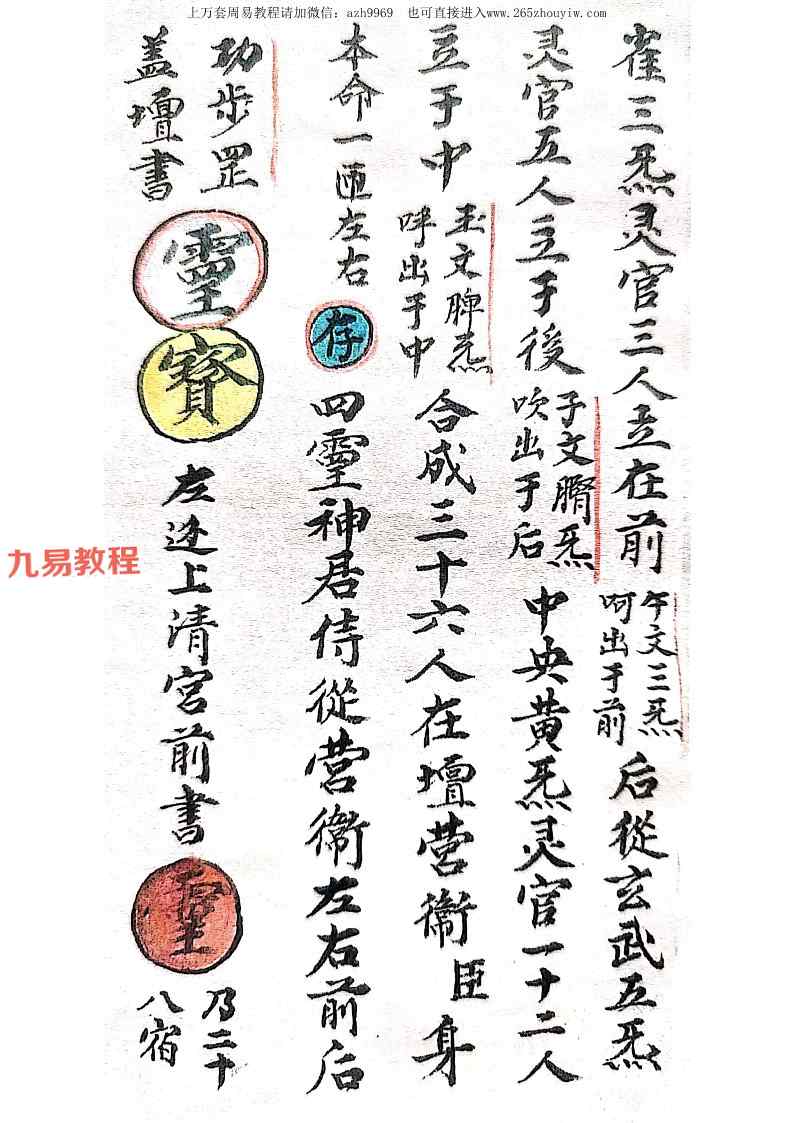 上万套周易教程请加微信：azh9969　也可直接进入www.265zhouyiw.com
雀三炁灵官三人立在前
午文三炁
呵出于前
后從玄武五炁
灵官五人立于後
子文腎炁
吹出于后
中央黄炁灵官一十二人
立于中
文脾炁
呼出于中
合成三十六人在壇营衛臣身
本命一匝左右
存
四靈神君侍從营衛左右前后
功步罡
盖壇書
靈
寳
左迳上清宫前書
靈
乃二十
八宿
九易教程